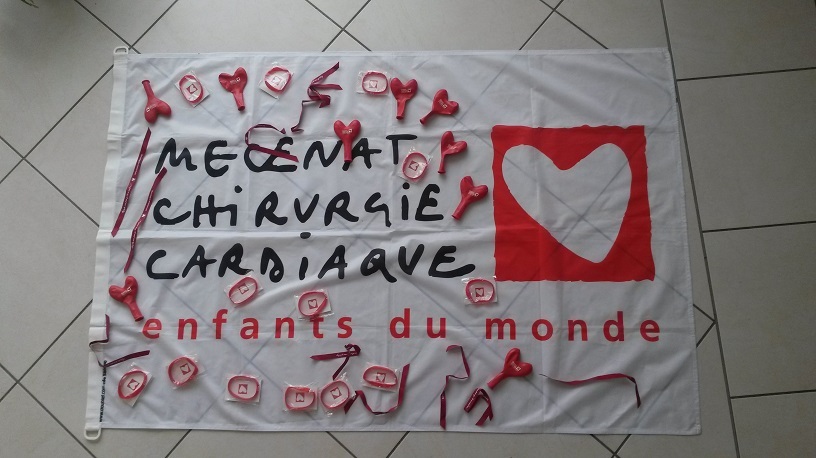 MECÉNAT
CHiRURGiE
CARDiAQUE
enfants du monde